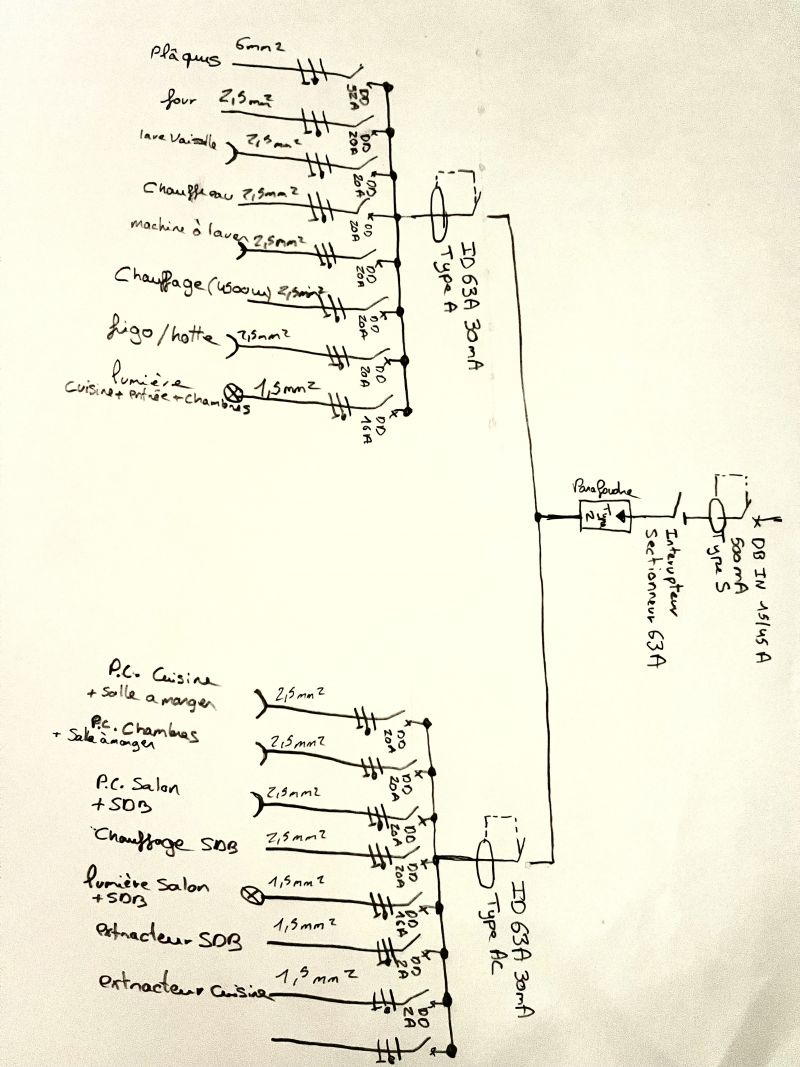 Plâques 6mm²
DD 32A
four 2,5mm²
DD 20A
lave Vaisselle 2,5mm²
DD 20A
Chauffeau 2,5mm²
DD 20A
machine à laver 2,5mm²
DD 20A
Chauffage (4500w) 2,5mm²
DD 20A
frigo/hotte 2,5mm²
DD 20A
lumière
Cuisine + entrée + Chambres 1,5mm²
DD 16A
ID 63A 30mA
Type A
Parafoudre
Type 2
Interrupteur
Sectionneur 63A
DB IN 15/45 A
500mA
Type S
P.C. Cuisine
+ Salle a manger 2,5mm²
DD 20A
P.C. Chambres
+ Salle à manger 2,5mm²
DD 20A
P.C. Salon
+ SDB 2,5mm²
DD 20A
Chauffage SDB 2,5mm²
DD 20A
lumière Salon
+ SDB 1,5mm²
DD 16A
extracteur SDB 1,5mm²
DD 2A
extracteur Cuisine 1,5mm²
DD 2A
ID 63A 30mA
Type AC